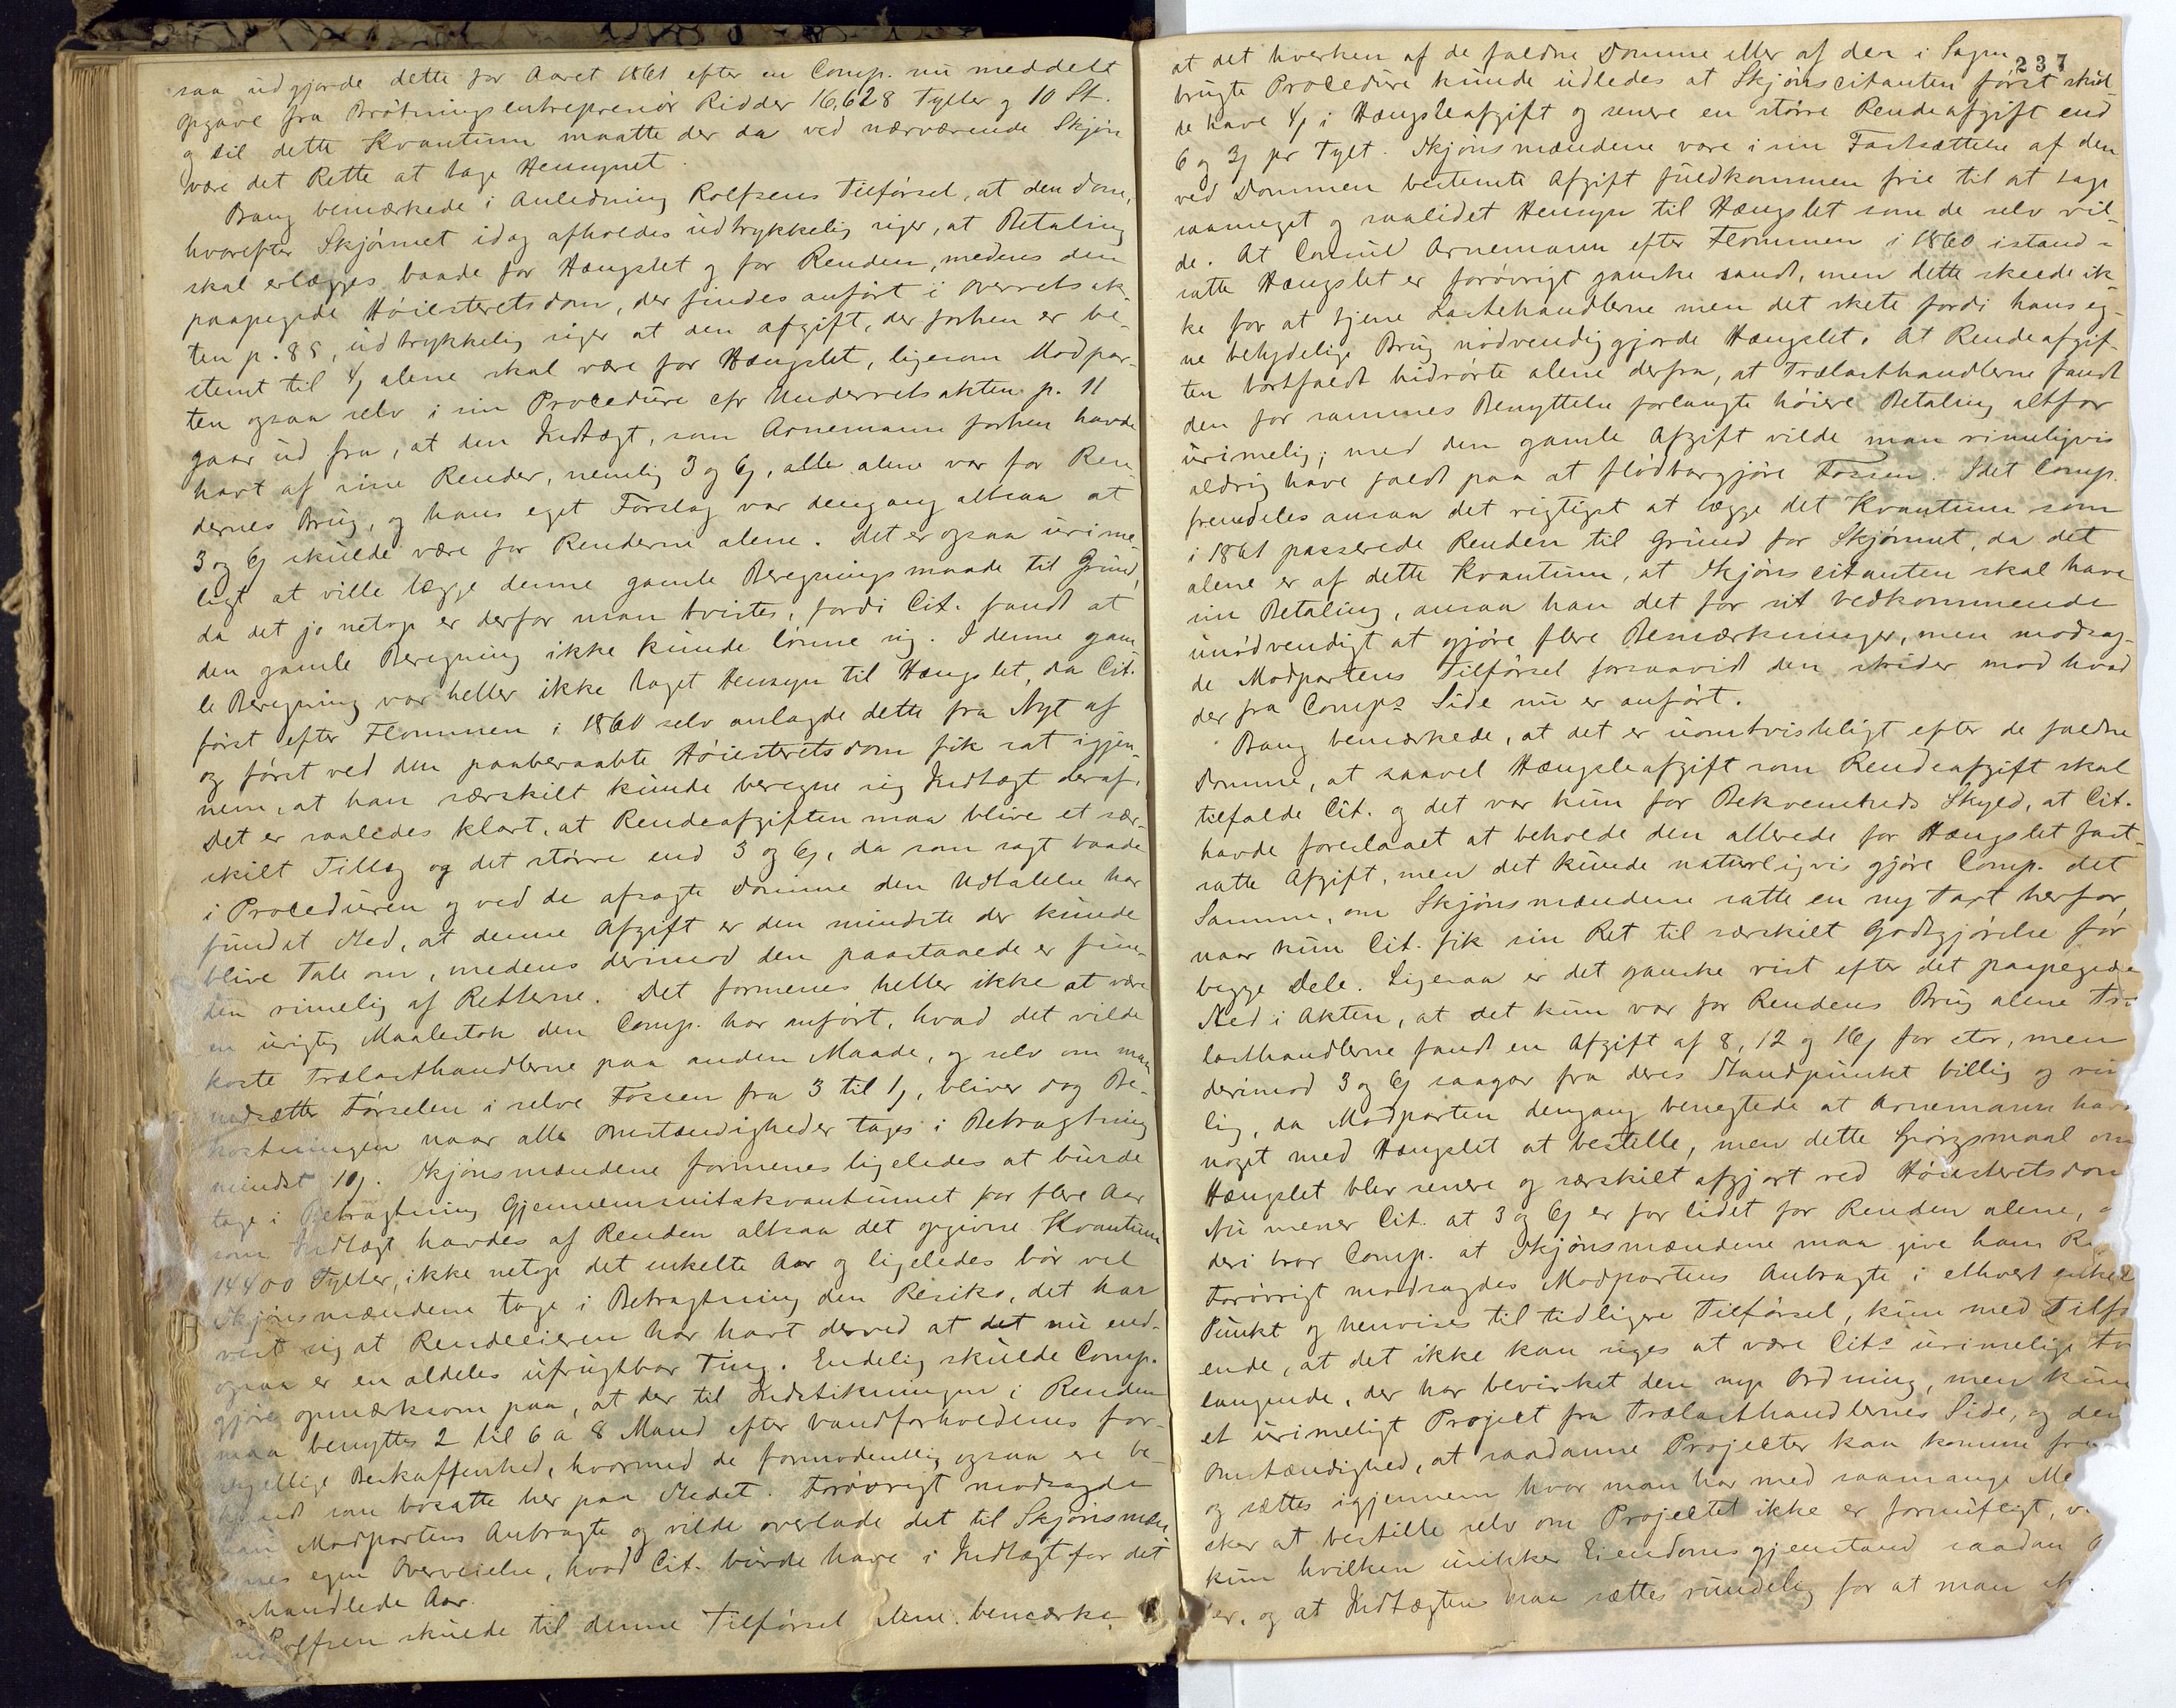 saa udgjorde dette for Aaret 1861 efter en Comp. nu meddelt
opgave fra Brötningsentreprenör Ridder 16,628 Tylter og 10 St.
og til dette Kvantum maatte der da ved nærværende Skjön
være det Rette at tage Hensynet.
Bang bemærkede i Anledning Rolfsens Tilförsel, at den Dom,
hvorefter Skjönnet idag afholdes udtrykkelig siger, at Betaling
skal erlægges baade for Hængslet og for Renden, medens den
paapegede Höiesteretsdom, der findes anfört i Overretsak-
ten p. 85, udtrykkelig siger at den Afgift, der forhen er be-
stemt til 4 ß alene skal være for Hængslet, ligesom Modpar-
ten ogsaa selv i sin Procedüre cfr Underretsakten p. 11
gaar ud fra, at den Indtægt, som Arnemann forhen havde
havt af sine Render, nemlig 3 og 6 ß, alle alene var for Ren-
dernes Brug, og hans eget Forslag var dengang altsaa at
3 og 6 ß skulde være for Renderne alene. Det er ogsaa urime-
ligt at ville lægge denne gamle Beregningsmaade til Grund,
da det jo netop er derfor man tvistes, fordi Cit. fandt at
den gamle Beregning ikke kunde lönne sig. I denne gam-
le Beregning var heller ikke taget Hensyn til Hængslet, da Cit.
först efter Flommen i 1860 selv anlagde dette fra Nyt af
og först ved den paaberaabte Höiesteretsdom fik sat igjen-
nem, at han særskilt kunde beregne sig Indtægt deraf.
Det er saaledes klart, at Rendeafgiften maa blive et sær-
skilt Tillæg og det större end 3 og 6 ß, da som sagt baade
i Proceduren og ved de afsagte Domme den Udtalelse har
fundet Sted, at denne Afgift er den mindste der kunde
blive Tale om, medens derimod den paastaaede er fun-
den rimelig af Retterne. Det formenes heller ikke at være
en urigtig Maalestok den Comp. har anfört, hvad det vilde
koste Trælasthandlerne paa anden Maade, og selv om man
nedsætter Förselen i selve Fossen fra 3 til 1 ß, bliver dog Be-
kostningen naar alle Omstændigheder tages i Betragtning
mindst 10 ß. Skjönsmændene formenes ligeledes at burde
tage i Betragtning Gjennemsnitskvantumet for flere Aar
som Indtægt havdes af Renden altsaa det opgivne Kvantum
14400 Tylter, ikke netop det enkelte Aar og ligeledes bör vel
Skjönsmændene tage i Betragtning den Risiko, det har
vist sig at Rendeeieren har havt derved at det nu end-
ogsaa er en aldeles ufrugtbar Ting. Endelig skulde Comp.
gjöre opmærksom paa, at der til Indstikningen i Renden
maa benyttes 2 til 6 a 8 Mand efter Vandforholdenes for-
skjellige Beskaffenhed, hvormed de formodentlig ogsaa ere be-
kjendt som bosatte her paa Stedet. Foröovrigt modsagde
han Modpartens Anbragte og vilde overlade det til Skjönsmæn-
denes egen Overveielse, hvad Cit. burde have i Indtægt for det
omhandlede Aar.
Rolfsen skulde til denne Tilförsel alene bemærke
237
at det hverken af de faldne Domme eller af den i Sagen
brugte Procedure kunde udledes at Skjönscitanten först skul-
de have 4 ß i Hængsleafgift og senere en större Rendeafgift end
6 og 3 ß pr Tylt. Skjönsmændene vare i sin Fastsættelse af den
ved Dommen bestemte Afgift fuldkommen frie til at tage
saameget og saalidet Hensyn til Hængslet som de selv vil-
de. At Consul Arnemann efter Flommen i 1860 istand-
satte Hængslet er forövrigt ganske sandt, men dette skeede ik-
ke for at tjene Lastehandlerne men det skete fordi hans eg-
ne betydelige Brug nödvendiggjorde Hængslet. At Rendeafgif-
ten bortfaldt hidrörte alene derfra, at Trælasthandlerne fandt
den for sammes Benyttelse forlangte höiere Betaling altfor
urimelig; med den gamle Afgift vilde man rimeligvis
aldrig have faldt paa at flödbargjöre Fossen. Idet Comp.
fremdeles ansaa det rigtigst at lægge det Kvantum som
i 1861 passerede Renden til Grund for Skjönnet, da det
alene er af dette Kvantum, at Skjönscitanten skal have
sin Betaling, ansaa han det for sit Vedkommende
unödvendigt at gjöre flere Bemærkninger, men modsag-
de Modpartens Tilförsel forsaavidt den strider mod hvad
der fra Comps Side nu er anfört.
Bang bemærkede, at det er uomtvisteligt efter de faldne
Domme, at saavel Hængsleafgift som Rendeafgift skal
tilfalde Cit. og det var kun for Bekvemheds Skyld, at Cit.
havde foreslaaet at beholde den allerede for Hængslet fast-
satte Afgift, men det kunde naturligvis gjöre Comp. det
Samme, om Skjönsmændene satte en ny Taxt herfor,
naar kun Cit. fik sin Ret til særskilt Godtgjörelse for
begge Dele. Ligesaa er det ganske vist efter det paapegede
Sted i Akten, at det kun var for Rendens Brug alene Træ-
lasthandlerne fandt en Afgift af 8, 12 og 16 ß for stor, men
derimod 3 og 6 ß saagar fra deres Standpunkt billig og
lig, da Modparten dengang benegtede at Arnemann havde
noget med Hængslet at bestille, men dette Spörgsmaal om
Hængslet blev senere og særskilt afgjort ved Höiesteretsdom
Nu mener Cit. at 3 og 6 ß er for lidet for Renden alene,
deri tror Comp. at Skjönsmændene maa give ham
Forövrigt modsagdes Modpartens Anbragte i ethvert enkelt
Punkt og henvises til tidligere Tilförsel, kun med
ende, at det ikke kan siges at være Cits urimelige
langende, der har bevirket den nye Ordning, men kun
et urimeligt Project fra Trælasthandlernes Side, og den
Omstændighed, at saadanne Projecter kan komme
og sættes igjennem hvor man har med saamange
sker at bestille selv om Projectet ikke er fornuftigt,
kun hvilken usikker Eiendomsgjenstand saadan
er, og at Indtægten maa sættes rundelig for at man